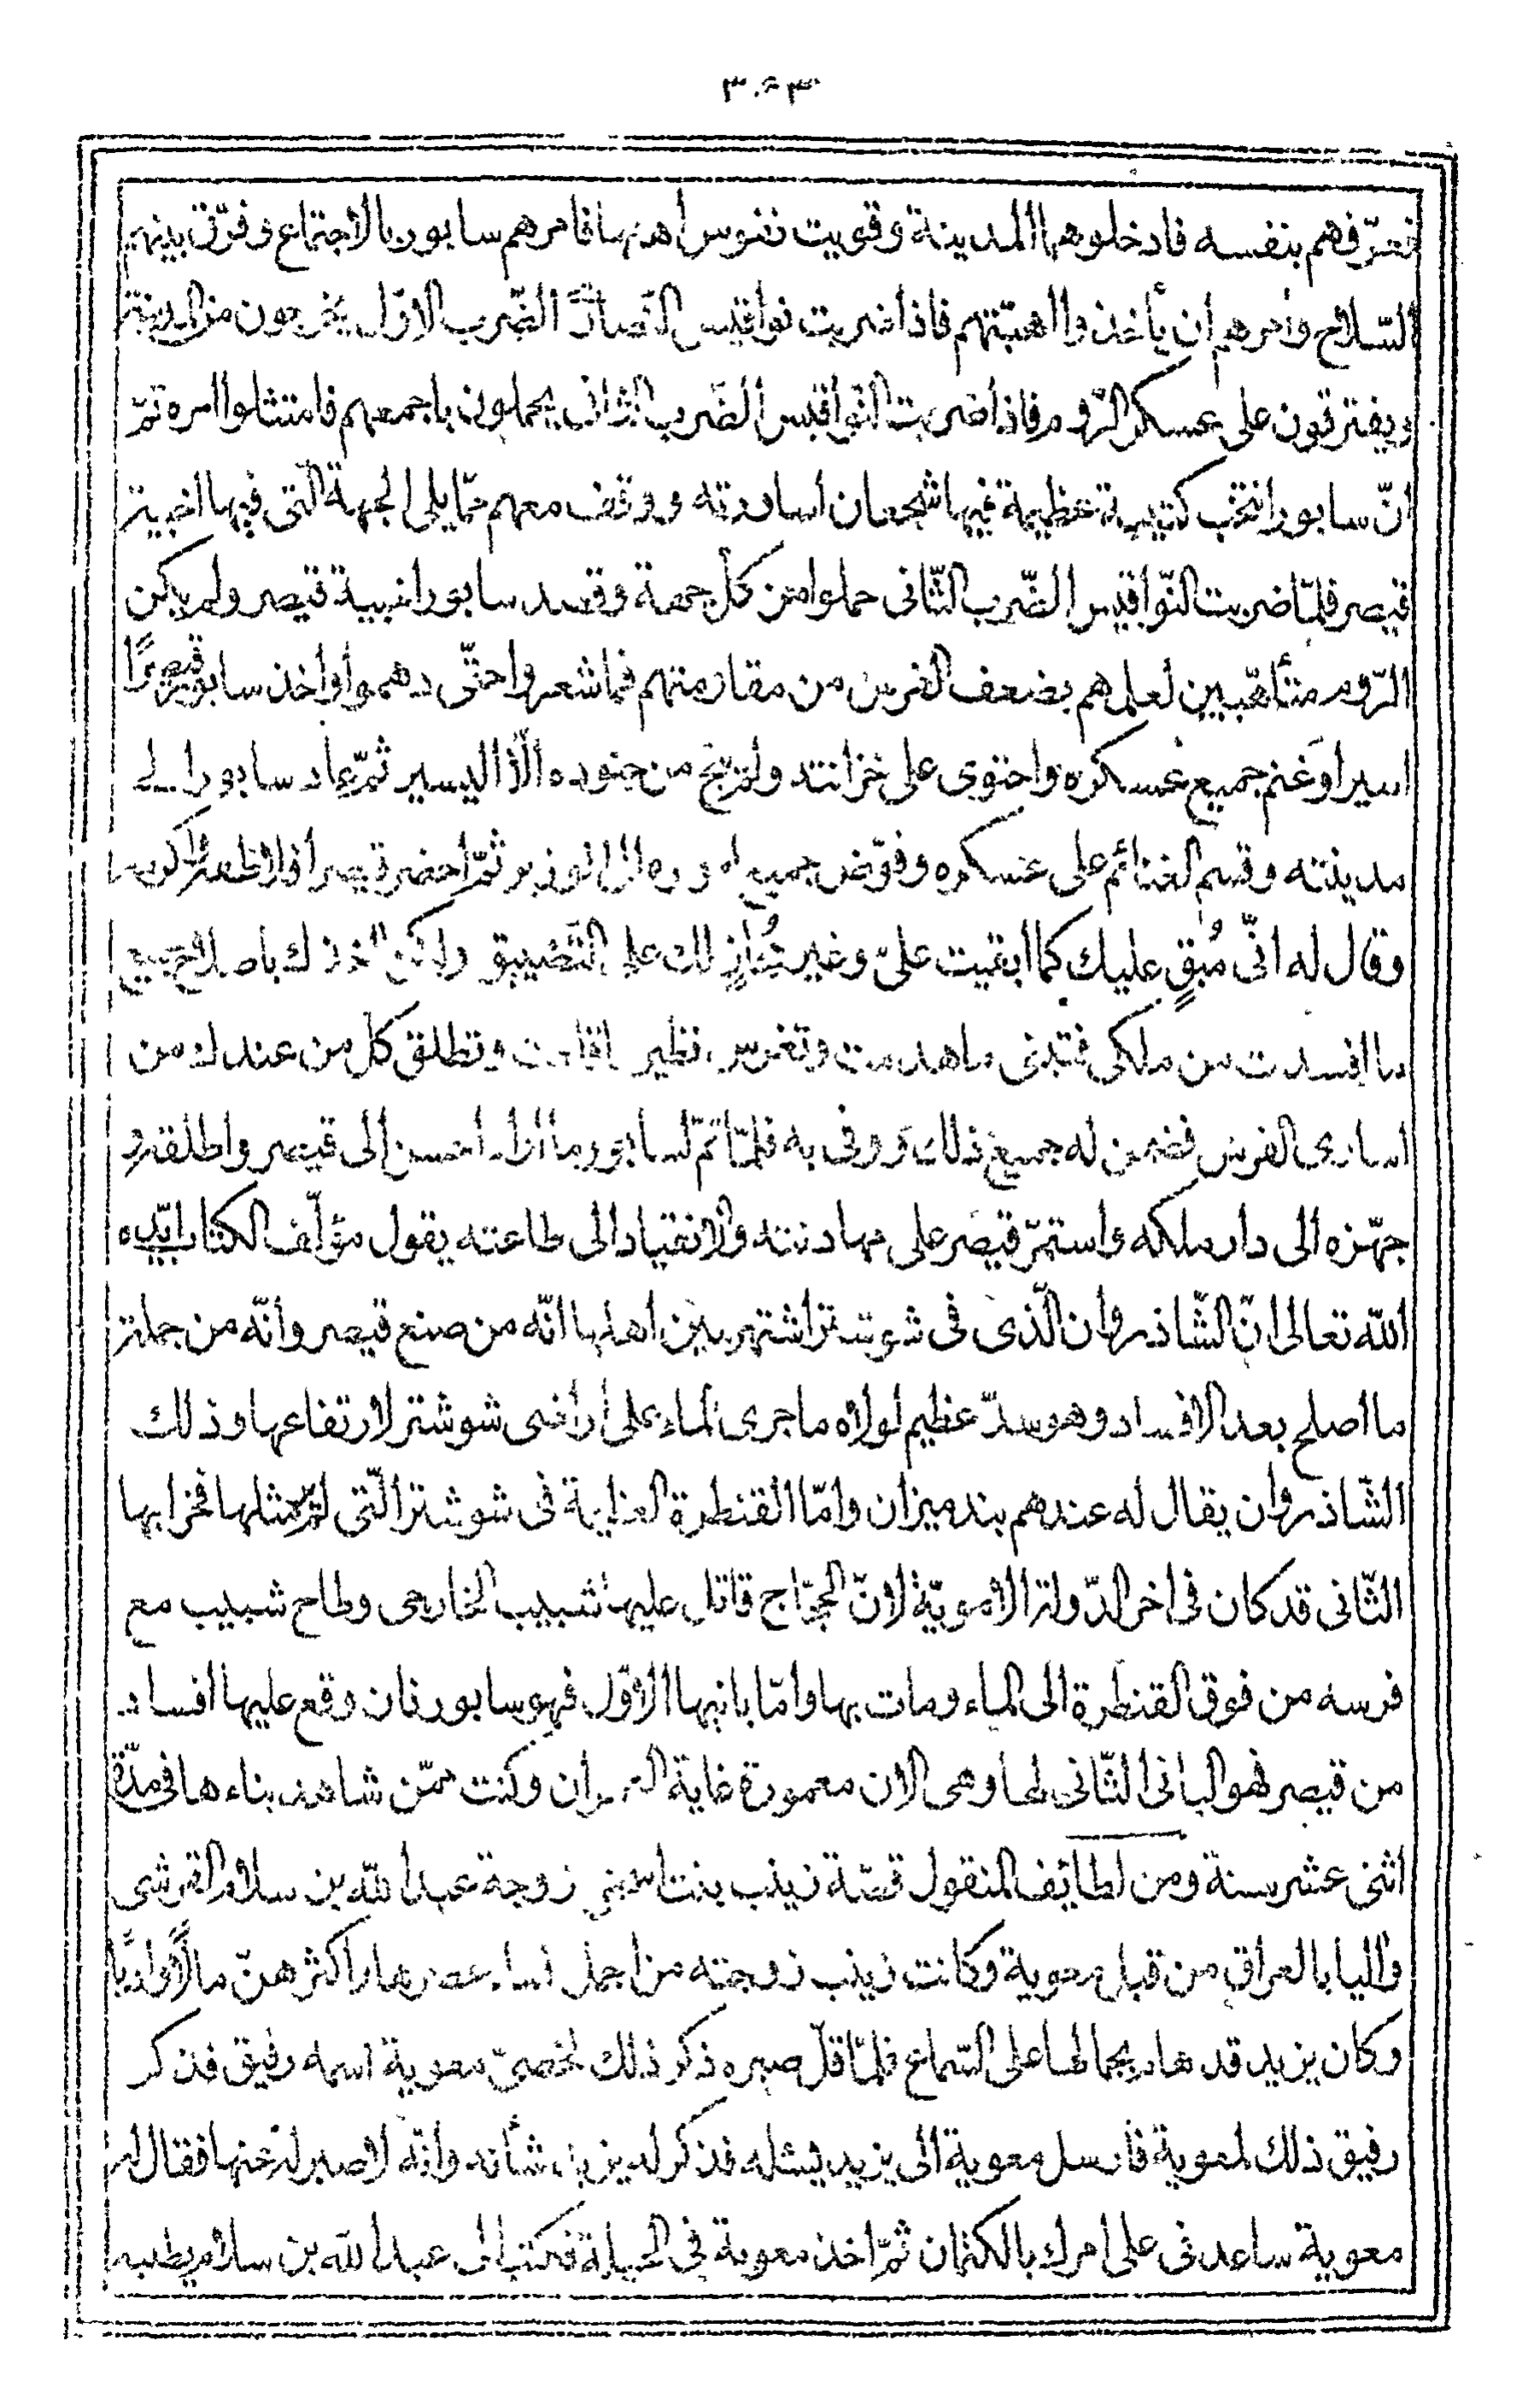 ٣٠٤٣
فعرّفهم بنفسه فادخلوهما المدينة وقويت نفوس اهلها فامرهم سابور بالاجتماع وفرّق بينهم
السّلاح وامرهم ان يأخذوا اهبّتهم فاذا ضربت نواقيس النّصارى الضّرب الاوّل يخرجون من المدينة
ويفترقون على عسكر الرّوم فاذا ضربت النّواقيس الضّرب الثّانى يحملون باجمعهم فامتثلوا امره ثمّ
انّ سابور انتخب كتيبة عظيمة فيها شجعان اساورته ووقف معهم ممّا يلى الجهة الّتى فيها اخبية
قيصر فلمّا ضربت النّواقيس الضّرب الثّانى حملوا من كلّ جهة وقصد سابور اخبية قيصر ولم يكن
الرّوم متأهّبين لعلمهم بضعف الفرس من مقاومتهم فما شعروا حتّى دهموا واخذ سابور قيصرًا
اسيرا وغنم جميع عسكره واحتوى على خزانته ولم ينج من جنوده الّا اليسير ثمّ عاد سابور الى
مدينته وقسم الغنائم على عسكره وفوّض جميع اموره الى الوزير ثمّ احضر قيصرا
وقال له انّى مُبقٍ عليك كما ابقيت علىّ وغير مُجازٍ لك على التّضييق ولكن اخذك باصلاح جميع
ما افسدت من ملكى فتبنى ما هدمت وتغرس نظير وتطلق كل من عندك من
اسارى الفرس فضمن له جميع ذلك ووفى به فلمّا تمّ لسابور ما اراد احسن الى قيصر واطلقه و
جهّزه الى دار ملكه واستمرّ قيصر على مهادنته والانقياد الى طاعته يقول مؤلّف الكتاب ايّده
اللّه تعالى انّ الشّاذروان الّذى فى شوشتر اشتهر بين اهلها انّه من صنع قيصر وانّه من جملة
ما اصلح بعد الافساد وهو سدّ عظيم لولاه ما جرى الماء على اراضى شوشتر لارتفاعها وذلك
الشّاذروان يقال له عندهم بند ميزان وامّا القنطرة العالية فى شوشتر الّتى لم ير مثلها فخرابها
الثّانى قد كان فى اخر الدّولة الامويّة لانّ الحجّاج قاتل عليها شبيب الخارجى وطاح شبيب مع
فرسه من فوق القنطرة الى الماء ومات بها وامّا بانيها الاوّل فهو سابور فان وقع عليها افساد
من قيصر فهو البانى الثّانى لها وهى الان معمورة غاية العمران وكنت ممّن شاهد بناءها فى مدّة
اثنى عشر سنة ومن لطائف المنقول قصّة زينب بنت زوجة عبد اللّه بن سلام القرشى
واليا بالعراق من قبل معوية وكانت زينب زوجته من اجمل نساء عصرها واكثرهنّ مالًا وادبًا
وكان يزيد قد هام بجمالها على السّماع فلمّا قلّ صبره ذكر ذلك لخصىّ معوية اسمه رفيق فذكر
رفيق ذلك لمعوية فارسل معوية الى يزيد يسئله فذكر له يزيد شأنه وانّه لا صبر له عنها فقال له
معوية ساعدنى على امرك بالكتمان ثمّ اخذ معوية فى الحيلة فكتب الى عبد اللّه بن سلام يطلبه